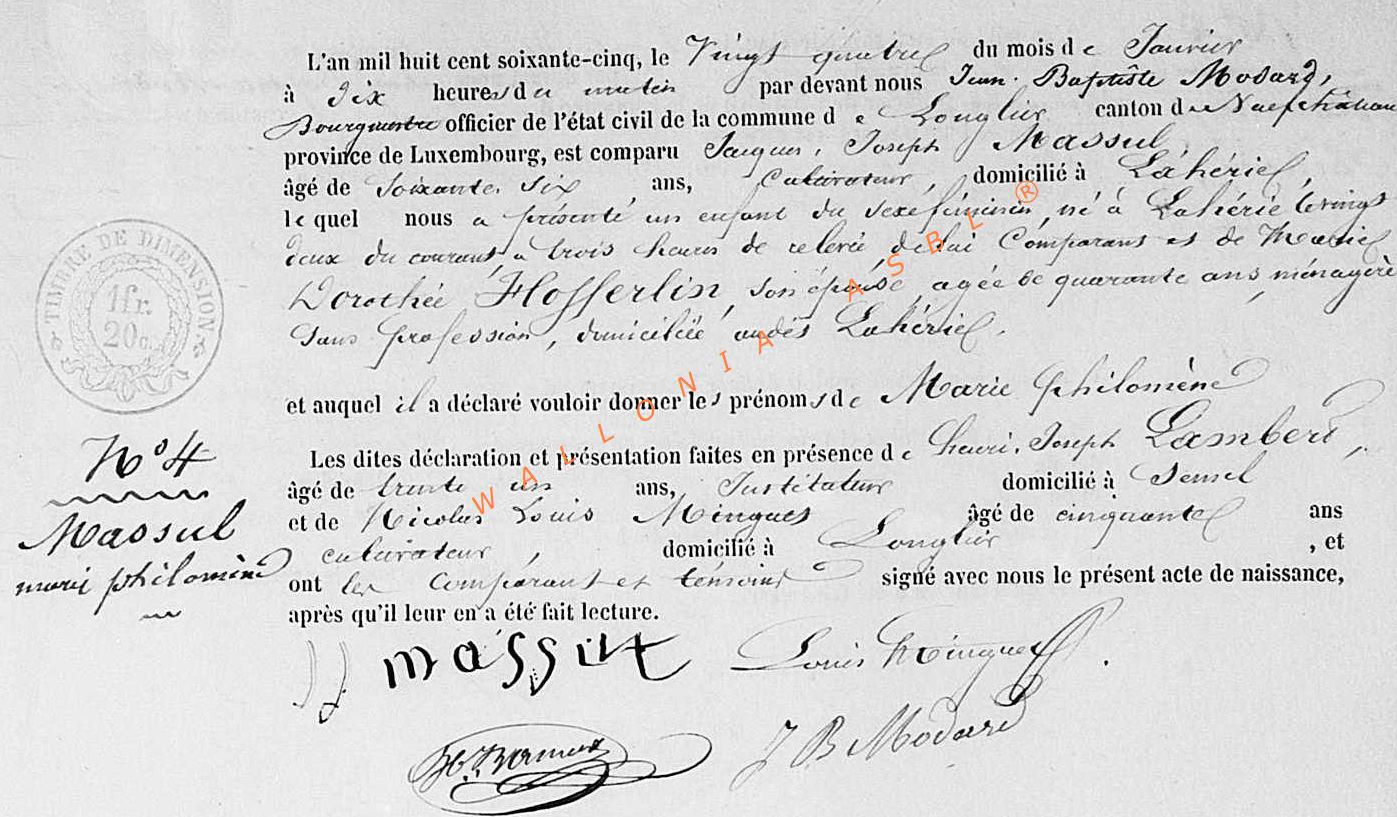 L'an mil huit cent soixante-cinq, le Vingt quatre du mois de Janvier
à dix heures du matin par devant nous Jean-Baptiste Modard,
Bourgmestre officier de l'état civil de la commune de Longlier canton de Neufchâteau
province de Luxembourg, est comparu Jacques, Joseph Massul,
âgé de soixante six ans, Cultivateur, domicilié à Lahérie,
lequel nous a présenté un enfant du sexe féminin, né à Lahérie le vingt
deux du courant à trois heures de relevée, de lui Comparant et de Marie
Dorothée Hofferlin, son épouse, agée de quarante ans, ménagère
sans profession, domiciliée audit Lahérie.
et auquel il a déclaré vouloir donner les prénoms de Marie philomène
Les dites déclaration et présentation faites en présence de henri, Joseph Lambert,
âgé de trente un ans, Instituteur domicilié à Semel
et de Nicolas Louis Mingues âgé de cinquante ans
cultivateur, domicilié à Longlier, et
ont les Comparant et témoins signé avec nous le présent acte de naissance,
après qu'il leur en a été fait lecture.
TIMBRE DE DIMENSION
1fr.
20c.
N° 4
Massul
marie philomène
JJ massut
Louis Mingues
J B Modard
WALLONIA ASBL ®